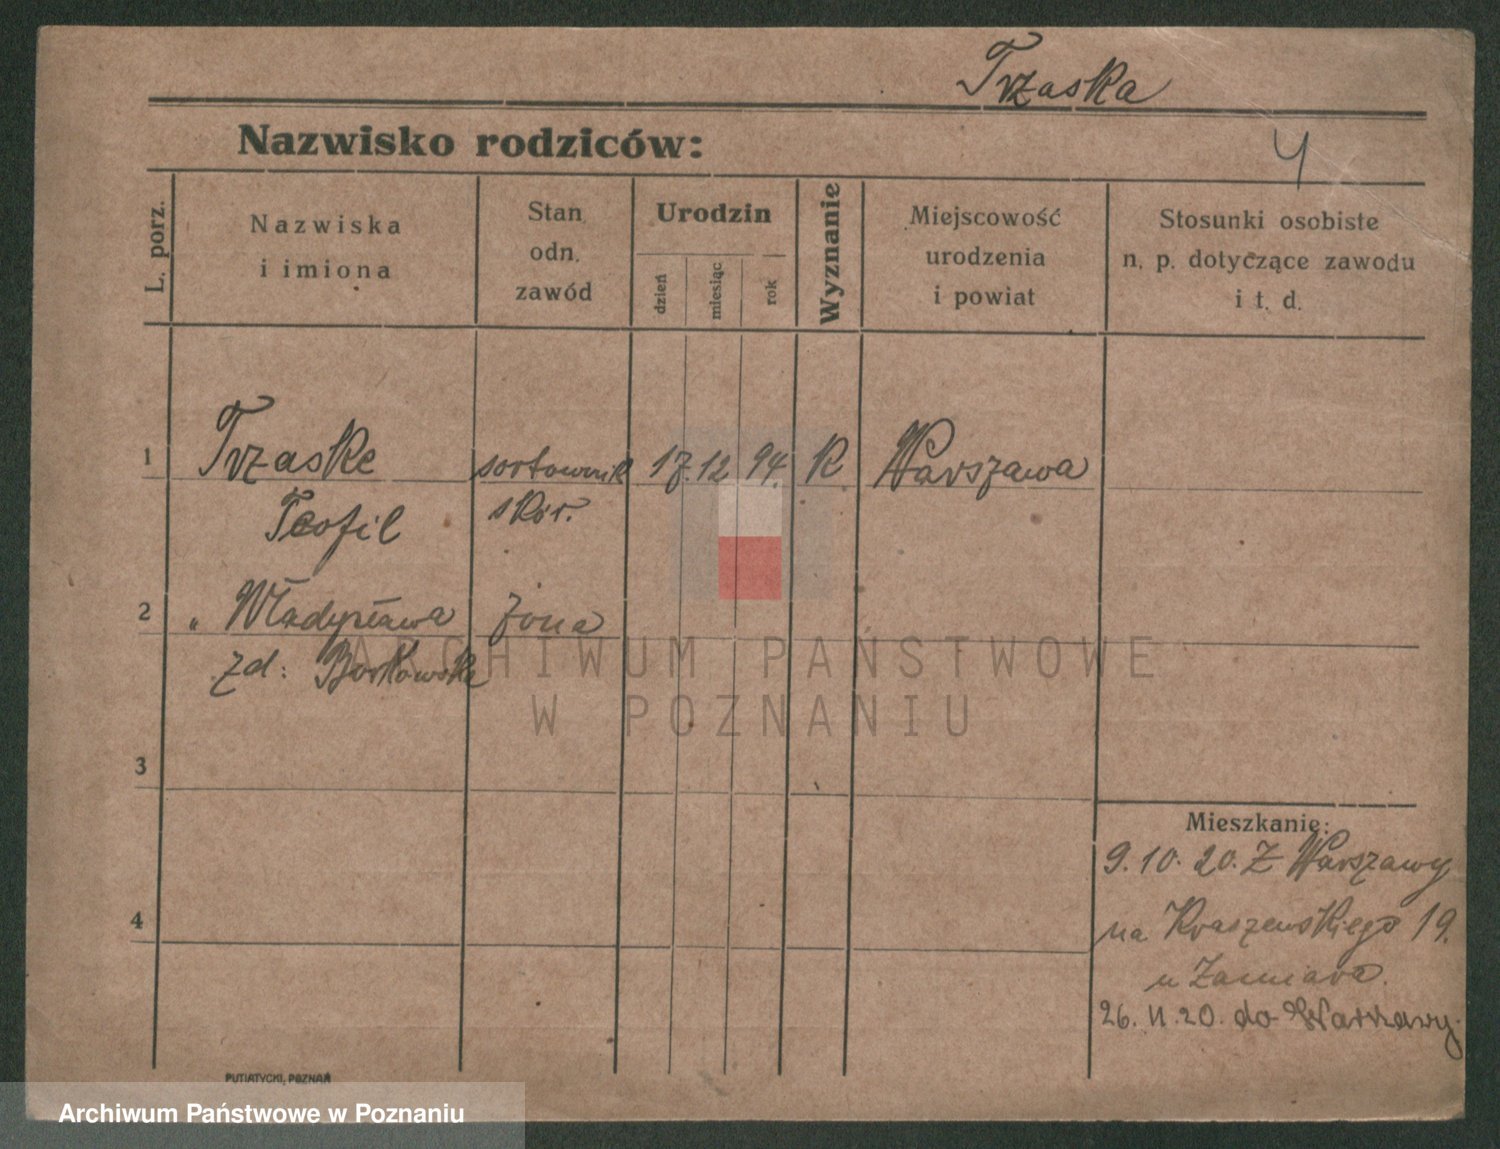 Trzaska
Nazwisko rodziców:
4
L. porz.
Nazwiska
i imiona
Stan,
odn.
zawód
Urodzin
dzień
miesiąc
rok
Wyznanie
Miejscowość
urodzenia
i powiat
Stosunki osobiste
n. p. dotyczące zawodu
i t. d.
1 Trzaska sortownik 17. 12 94. K. Warszawa
Teofil skór.
2 " Władysława żona
zd: Borkowska
3
4
Mieszkanie:
9. 10. 20. Z Warszawy
na Kraszewskiego 19.
u
26. 11. 20. do Warszawy.
PUTIATYCKI, POZNAŃ
ARCHIWUM PAŃSTWOWE
W POZNANIU
Archiwum Państwowe w Poznaniu